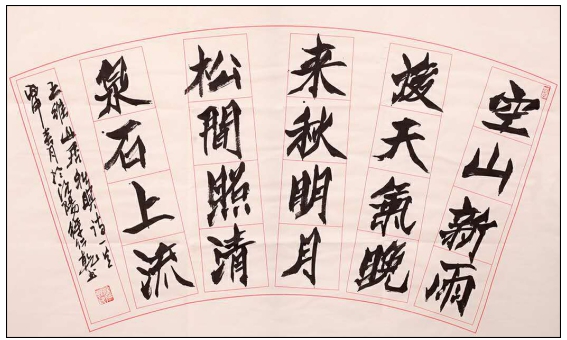 空山新雨
後天氣晚
来秋明月
松間照清
泉石上流
王維山居秋暝詩一
於洛陽